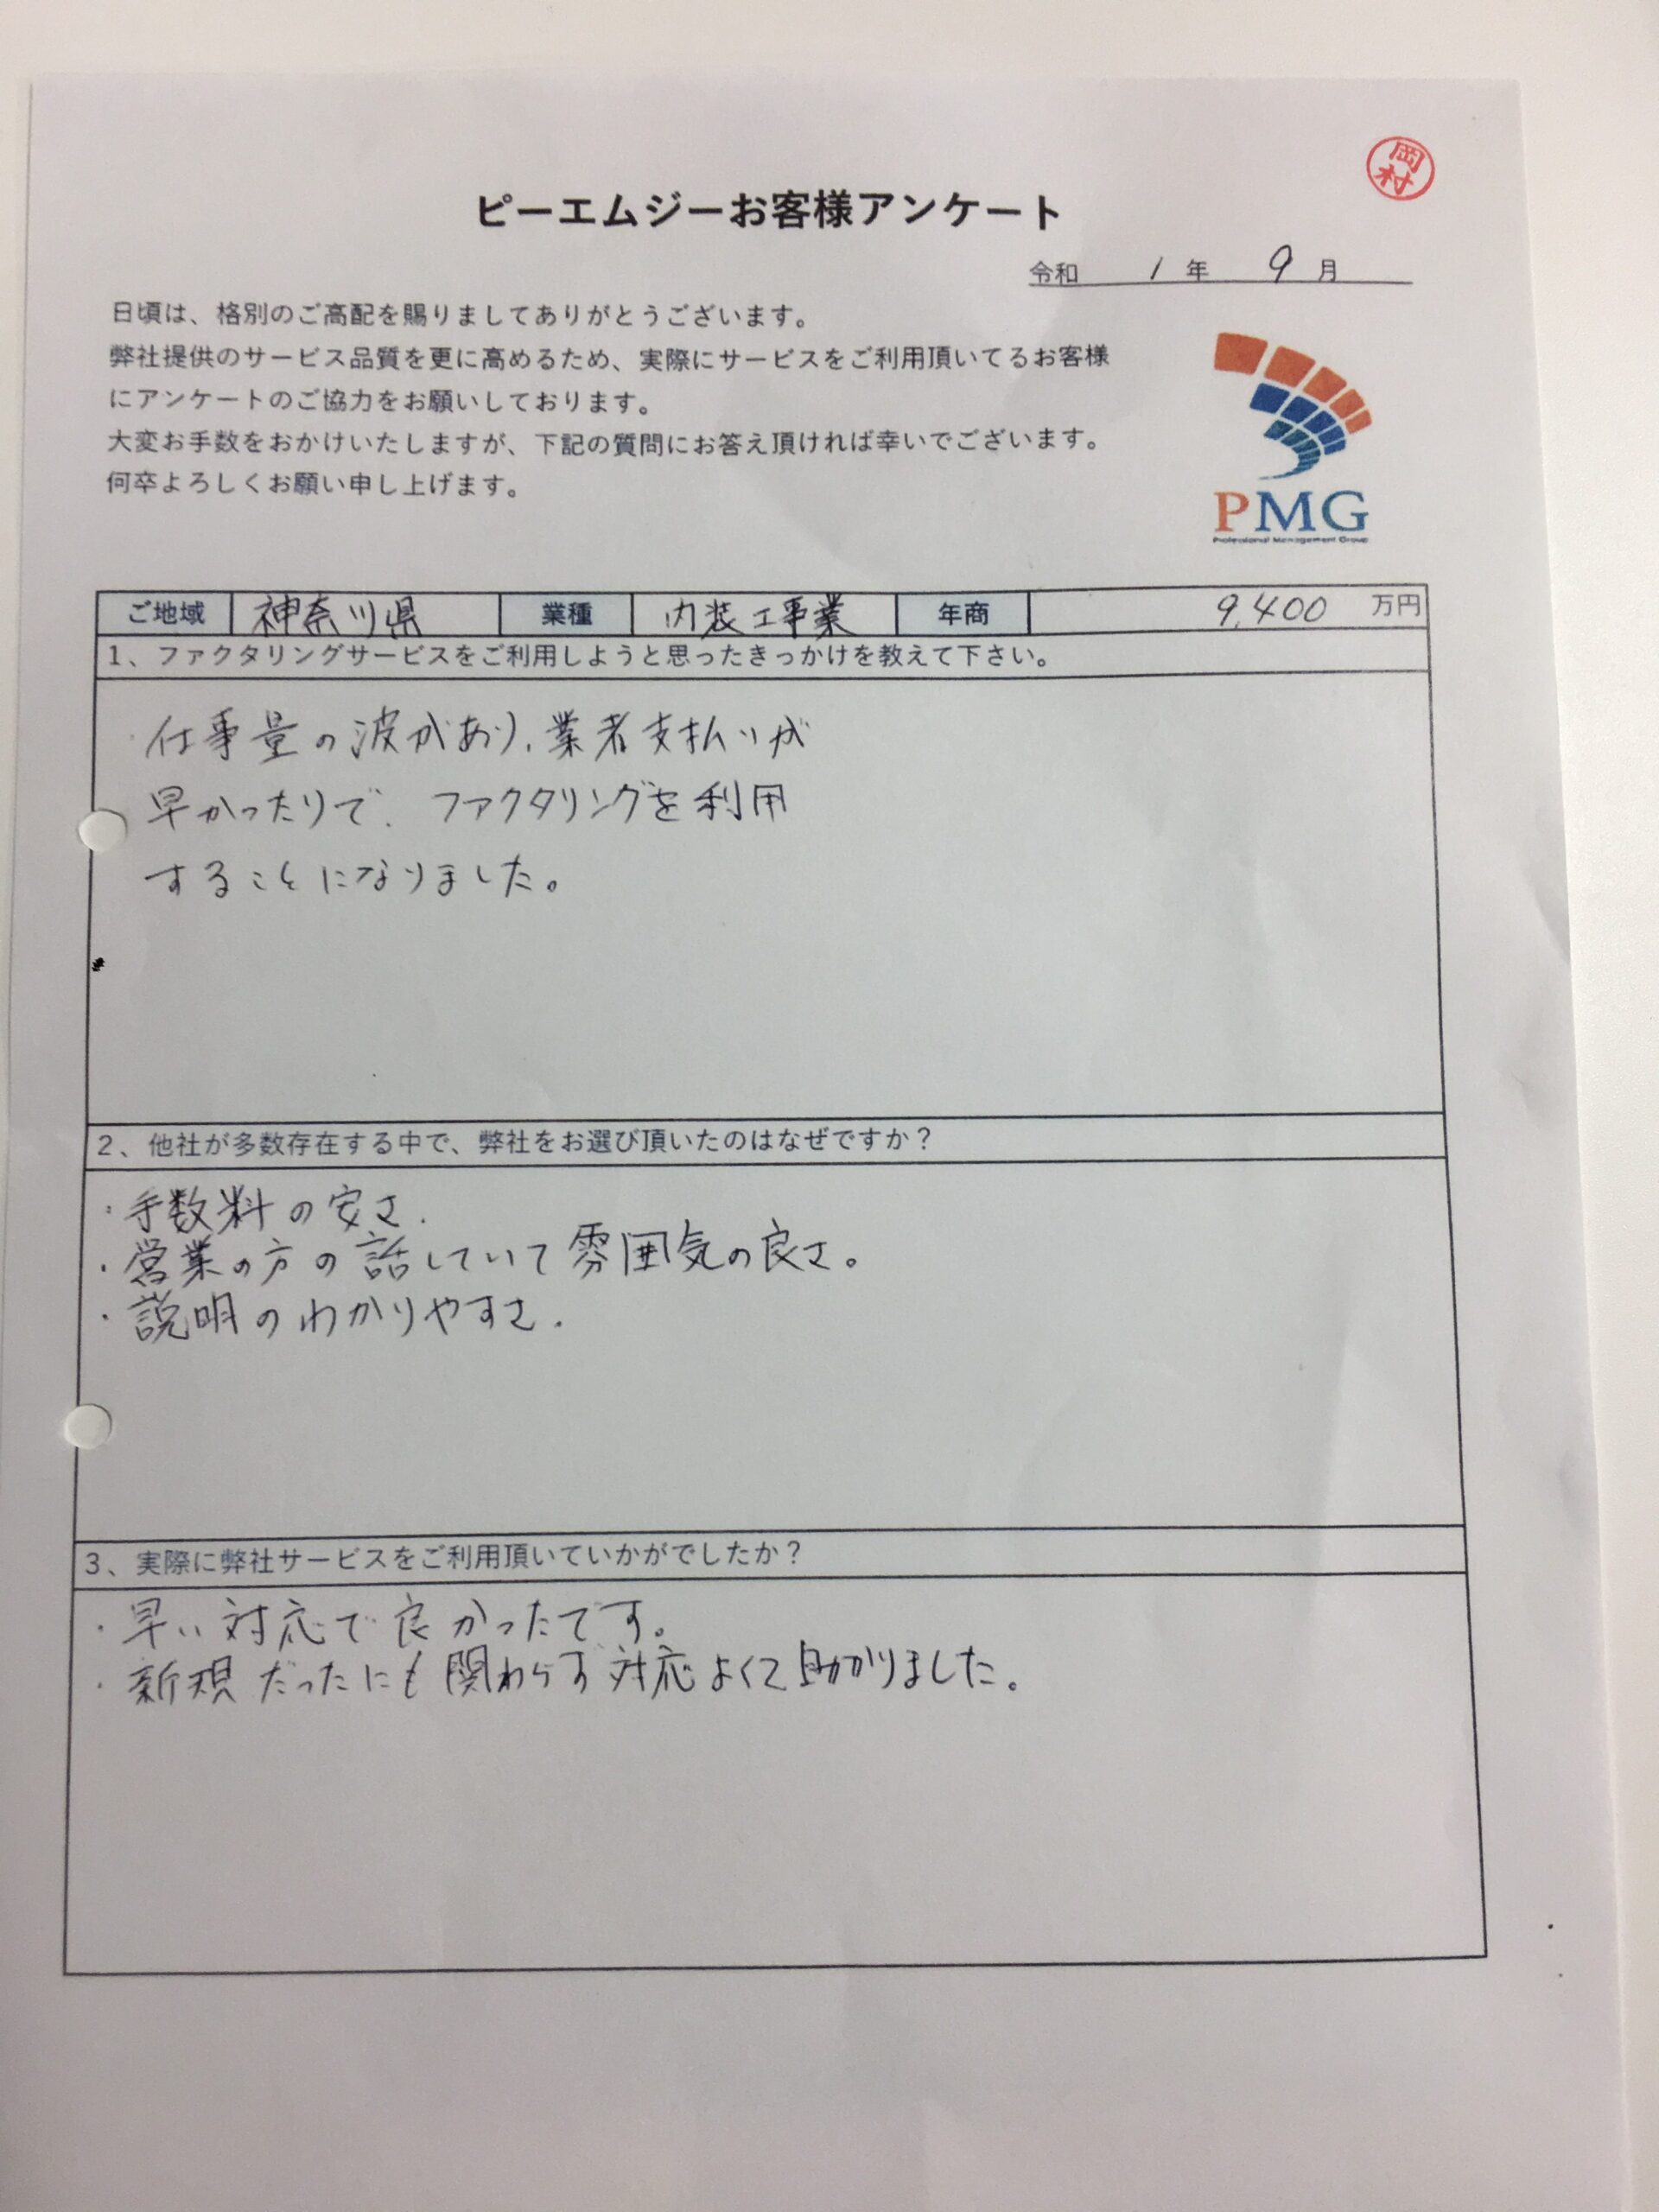 岡村
ピーエムジーお客様アンケート
令和 1 年 9 月
日頃は、格別のご高配を賜りましてありがとうございます。
弊社提供のサービス品質を更に高めるため、実際にサービスをご利用頂いてるお客様
にアンケートのご協力をお願いしております。
大変お手数をおかけいたしますが、下記の質問にお答え頂ければ幸いでございます。
何卒よろしくお願い申し上げます。
PMG
Professional Management Group
ご地域 神奈川県 業種 内装工事業 年商 9,400 万円
1、ファクタリングサービスをご利用しようと思ったきっかけを教えて下さい。
仕事量の波があり、業者支払いが
早かったりで、ファクタリングを利用
することになりました。
2、他社が多数存在する中で、弊社をお選び頂いたのはなぜですか？
・手数料の安さ.
・営業の方の話していて雰囲気の良さ。
・説明のわかりやすさ.
3、実際に弊社サービスをご利用頂いていかがでしたか？
・早い対応で良かったです。
・新規だったにも関わらず対応よくて助かりました。